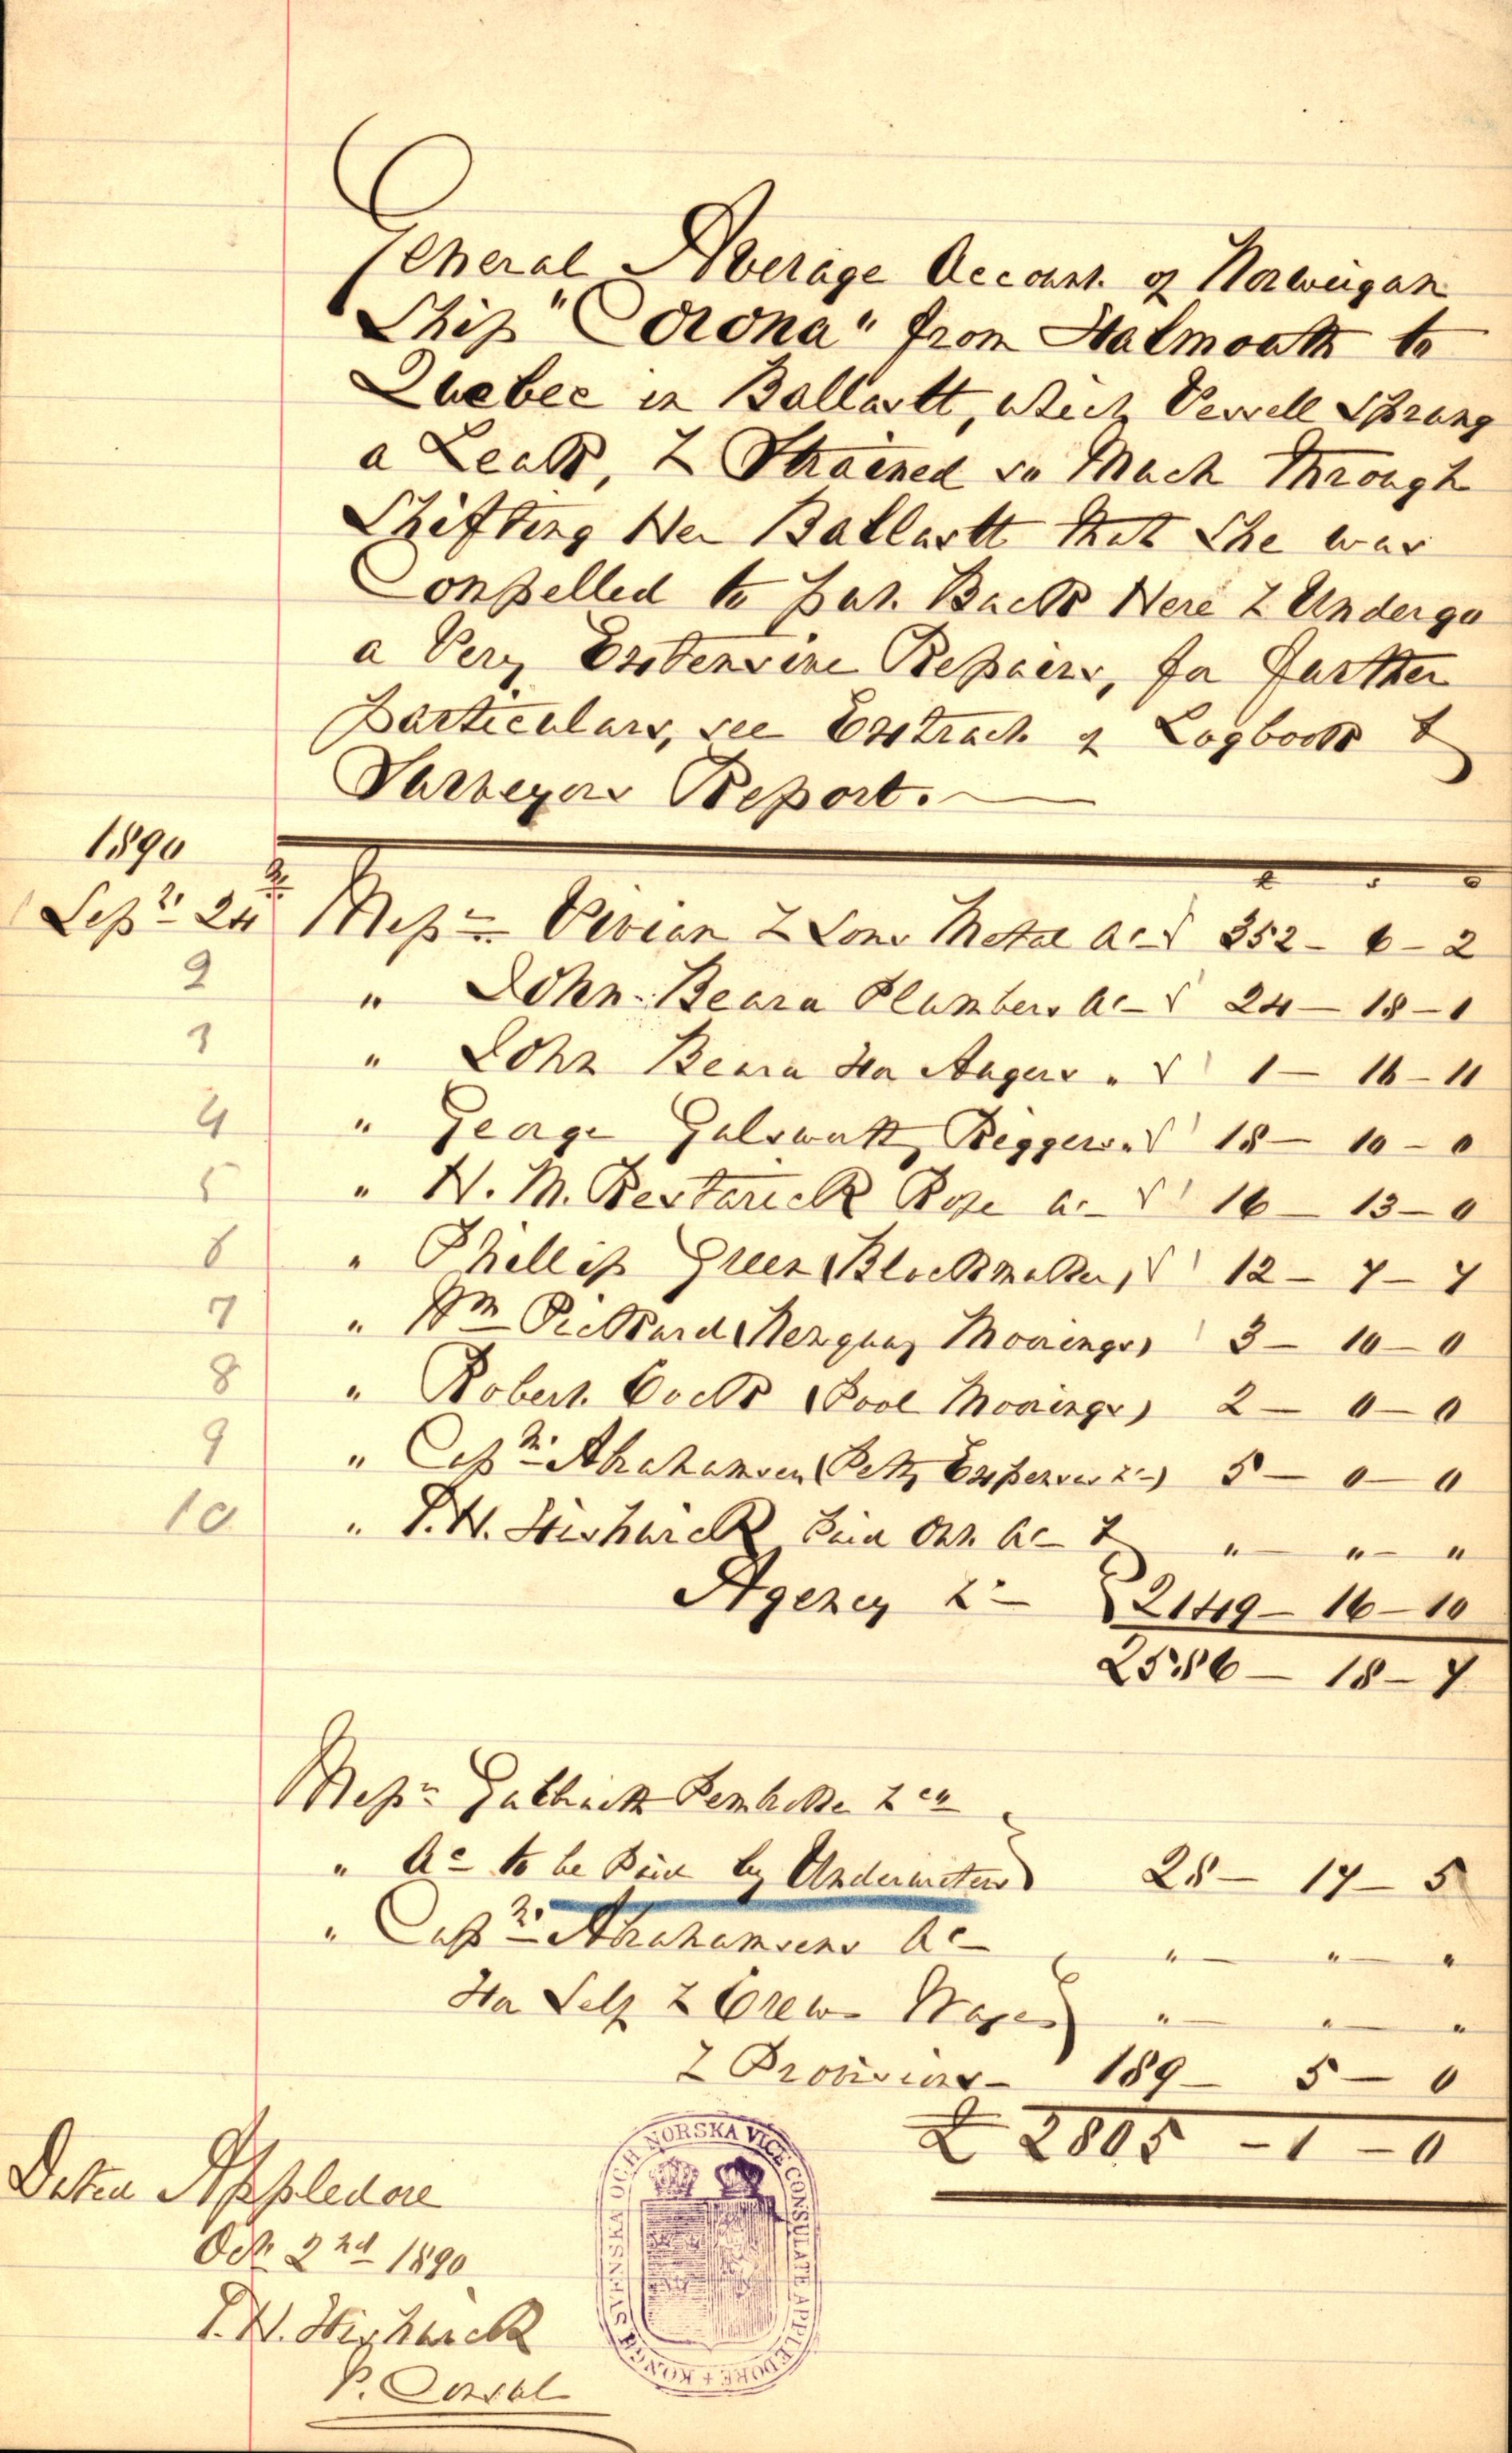 General Average Account. of Norweigan
Ship "Corona" from Falmouth to
Quebec in Ballastt, which Vessell Sprang
a Leak, & Strained so Much Through
Shifting Her Ballastt that She was
Conpelled to put Back Here & Undergo
a Very Extensive Repairs, for further
particulars, see Extract of Logbook &
Surveyors Report.
1890
£ s D
Sepr 24 Messrs Vivian & Sons Metal ac 352 - 6 - 2
2 " John Beara Plumbers ac 24 - 18 - 1
3 " John Beara for Augers " 1 - 16 - 11
4 " George Galsworthy Riggers " 18 - 10 - 0
5 " H. M. Restarick Rope ac 16 - 13 - 0
6 " Phillip Green (Blockmaker) 12 - 7 - 7
7 " Wm Pickard (Newquay Moorings) 3 - 10 - 0
8 " Robert Cock (Pool Moorings) 2 - 0 - 0
9 " Captn Abrahamsen (Petty Expenses &c) 5 - 0 - 0
10 " T. H. Fishwick Paid Out ac & " - " - "
Agency &c £2149 - 16 - 10
2586 - 18 - 7
Messrs & co
" Ac to be Paid by Underwriters 28 - 17 - 5
" Captn Abrahamsens ac " - " - "
For Self & Crew Wages " - " - "
& Provisions - 189 - 5 - 0
£ 2805 - 1 - 0
Dated Appledore
Oct. 2nd 1890
V. Consul
KONGL. SVENSKA OCH NORSKA VICE CONSULATE APPLEDORE